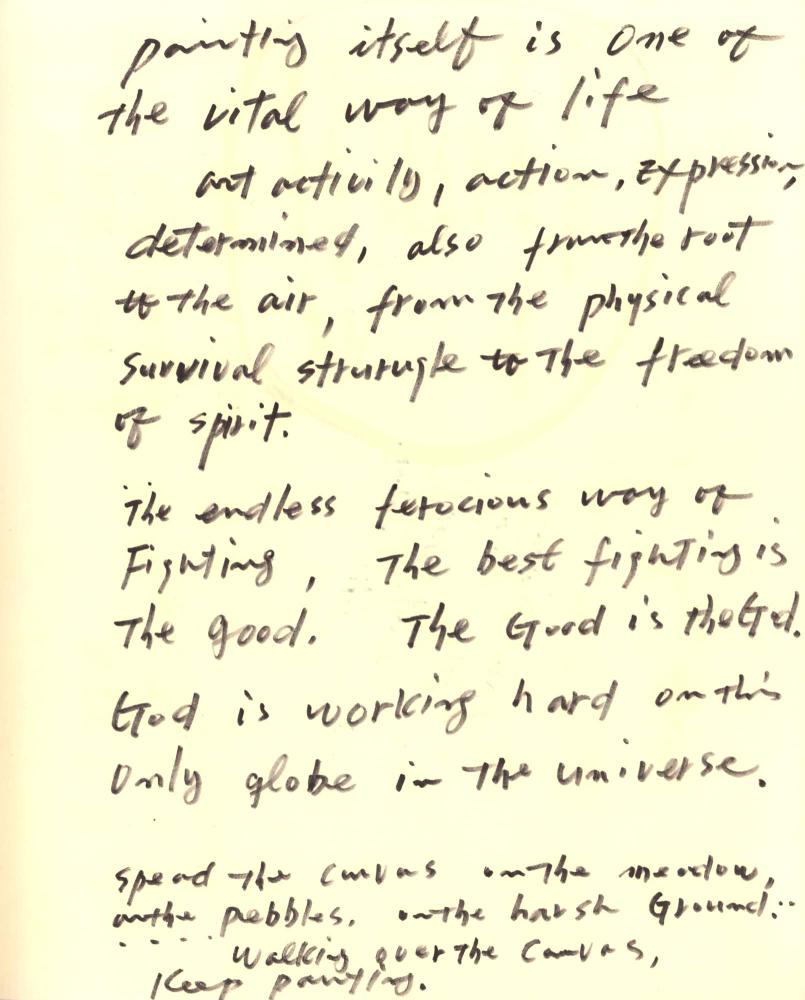 painting itself is One of
the vital way of life
art activity, action, Expression,
determined, also from the root
to the air, from the physical
Survival strurugle to The freedom
of spirit.
The endless ferocious way of
Fighting, The best fighting is
The good. The Good is the God.
God is working hard on this
Only globe in the universe.
spead the canvas on the meadow,
on the pebbles. on the harsh Ground...
. . . . walking over the canvas,
Keep painting.